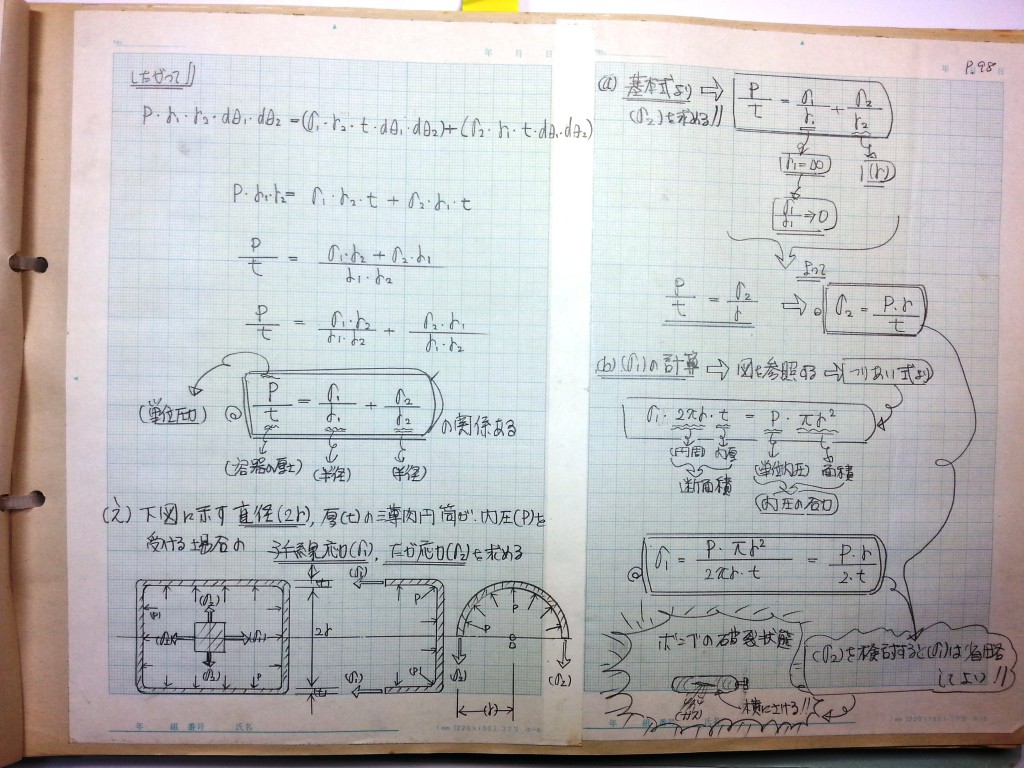 年 月 日
したがって //
P・r₁・r₂・dθ₁・dθ₂ = (σ₁・r₂・t・dθ₁・dθ₂) + (σ₂・r₁・t・dθ₁・dθ₂)
P・r₁・r₂ = σ₁・r₂・t + σ₂・r₁・t
P/t = (σ₁・r₂ + σ₂・r₁)/(r₁・r₂)
P/t = (σ₁・r₂)/(r₁・r₂) + (σ₂・r₁)/(r₁・r₂)
(単位圧力) ◎ P/t = σ₁/r₁ + σ₂/r₂ の関係ある
(容器の厚さ) (半径) (半径)
下図に示す直径(2r), 厚(t)の薄肉円筒が、内圧(P)を
受ける場合の 子午線応力(σ₁), たが応力(σ₂)を求める
(σ₂) (σ₂) (σ₁) (σ₂) (P) P
t 2r t
(σ₁) P (P) (σ₁)
P P (σ₂) (σ₂) (r)
年 組 番号 氏名
年 P.98 日
(a) 基本式より ⇒ P/t = σ₁/r₁ + σ₂/r₂
(σ₂)を求める //
r₁=∞ (r)
σ₁/r₁→0
よって
P/t = σ₂/r ⇒ ◎ σ₂ = P・r/t
(b) (σ₁)の計算 ⇒ 図を参照する ⇒ つりあい式より
σ₁・2πr・t = P・πr²
(円周) 肉厚 (単位内圧) 面積
断面積 (内圧の合力)
◎ σ₁ = P・πr²/2πr・t = P・r/2・t
ボンベの破裂状態
(σ₂)を検討すると(σ₁)は省略
してよい //
(ガス) 横にさける //
年 組 番号 氏名